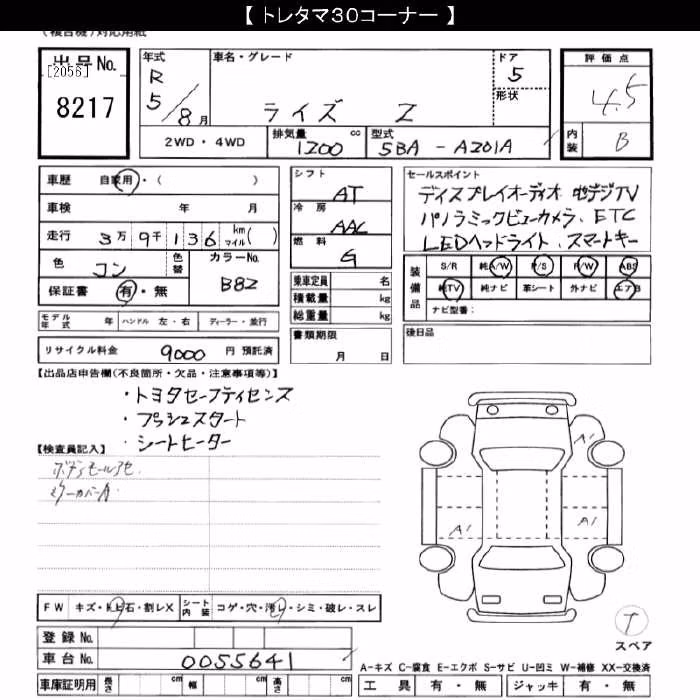 【 トレタマ30コーナー 】
(複合機)対応用紙
出品No.
[2056]
8217
年式 車名・グレード ドア
R 5/8月 ライズ Z 5
形状
2WD・4WD 排気量 1200 cc 型式 5BA - A201A
評価点
4.5
内装 B
車歴 自家用・( )
車検 年 月
走行 3万9千136 km マイル( )
色 コン 色替 カラーNo. B82
保証書 有・無
シフト AT
冷房 AAC
燃料 G
乗車定員 名
積載量 kg
総重量 kg
書類期限
月 日
セールスポイント
ディスプレイオーディオ 地デジTV
パノラミックビューカメラ、ETC
LEDヘッドライト、スマートキー
装備品 S/R 純A/W P/S P/W ABS
純TV 純ナビ 革シート 外ナビ エアB
ナビ型番:
後日品
モデル年式 年 ハンドル 左・右 ディーラー・並行
リサイクル料金 9000 円 預託済
【出品店申告欄(不良箇所・欠品・注意事項等)】
・トヨタセーフティセンス
・プッシュスタート
・シートヒーター
【検査員記入】
ミラーカバーA
A1
A1 A1
FW キズ・トビ石・割レX シート内装 コゲ・穴・汚レ・シミ・破レ・スレ
登録No.
車台No. 0055641
車庫証明用 長さ cm 幅 cm 高さ cm
T
スペア
A-キズ C-腐食 E-エクボ S-サビ U-凹ミ W-補修 XX-交換済
工具 有・無 ジャッキ 有・無